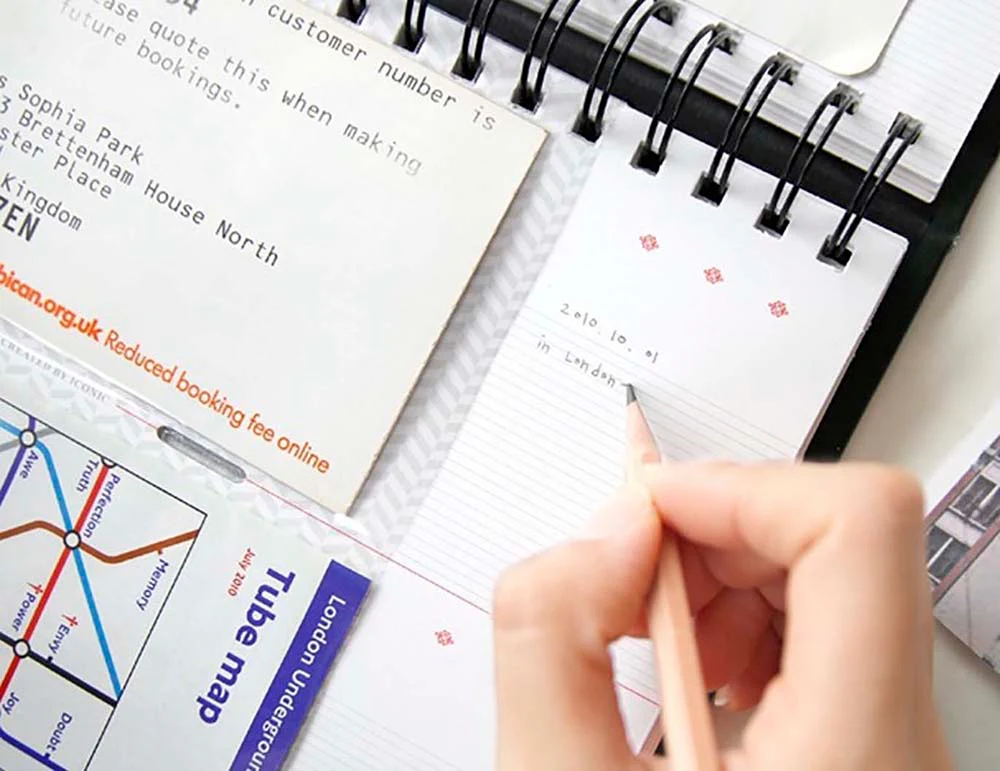 94
customer number is
ase quote this when making
future bookings.
s Sophia Park
3 Brettenham House North
ster Place
Kingdom
ZEN
bican.org.uk Reduced booking fee online
CREATED BY ICONIC
2010. 10. 01
in London
London Undergroun
Tube map
July 2010
Awe
Truth
Perfection
Memory
Power
Envy
Joy
Doubt